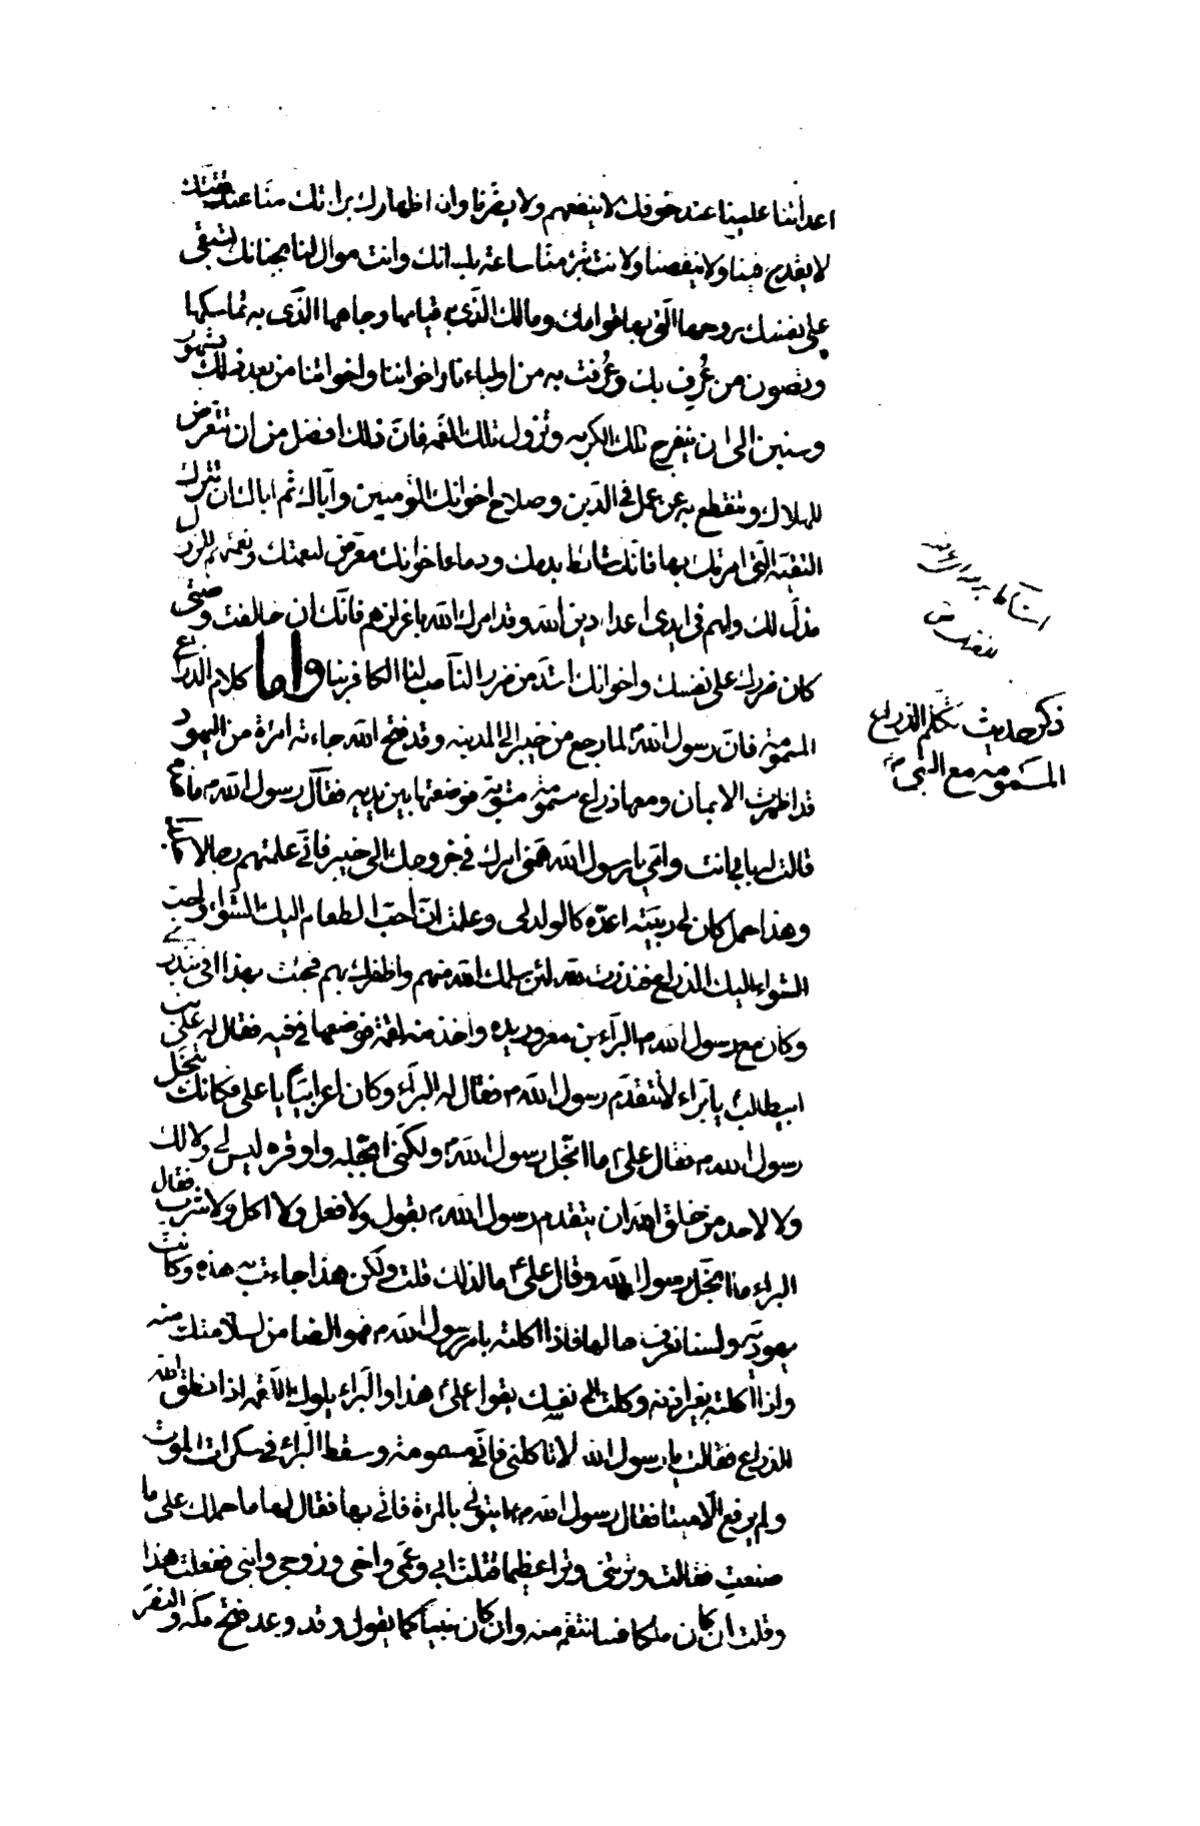 اعدائنا علينا عند خوفك لا ينفعهم ولا يضرنا وان اظهارك براءتك منا عند تقيتك
لا يقدح فينا ولا ينقصنا ولانت تبرء منا ساعة بلسانك وانت موال لنا بجنانك لتبقى
على نفسك روحها التى بها قوامك ومالك الذى به قيامها وجاهها الذى به تماسكها
وتصون من عُرف بك وعُرفت به من اوليائنا واخواننا واخواتنا من بعد ذلك بشهور
وسنين الى ان ينفرج تلك الكربه وتزول تلك الغمه فان ذلك افضل من ان تتعرض
للهلاك وتنقطع به عن عمل فى الدين وصلاح اخوانك المؤمنين واياك ثم اياك ان تترك
التقية التى امرتك بها فانك شائط بدمك ودماء اخوانك معرض لنعمتك ونعمتهم للزوال
مذل لك ولهم فى ايدى اعداء دين الله وقد امرك الله باعزازهم فانك ان خالفت وصيتى
كان ضررك على نفسك واخوانك اشد من ضرر الناصب لنا الكافر بنا واما كلام الذراع
المسمومة فان رسول الله لما رجع من خيبر الى المدينه وقد فتح الله جاءته امرءة من اليهود
قد اظهرت الايمان ومعها ذراع مسمومة مشوية فوضعتها بين يديه فقال رسول الله ما هذه
قالت له بابى انت وامى يا رسول الله همنى امرك فى خروجك الى خيبر فانى علمتهم رجالا
وهذا حمل كان لى ربيته اعده كالولد لى وعلمت ان احب الطعام اليك الشواء واحب
الشواء اليك الذراع فنذرت لله لئن سلمك الله منهم واظفرك بهم فجئت بهذا افى بنذرى
وكان مع رسول الله البراء بن معرور يده واخذ منه لقمة فوضعها فى فيه فقال له على بن
ابيطالب يا براء لا تتقدم رسول الله فقال له البراء وكان اعرابيا يا على فكانك تبخل
رسول الله فقال على ما ابخل رسول الله ولكنى ابجله واوقره ليس لى ولا لك
ولا لاحد من خلق الله ان يتقدم رسول الله بقول ولا فعل ولا اكل ولا شرب فقال
البراء ما ابخل رسول الله وقال على ما لذلك قلت ولكن هذا جاءت به هذه وكانت
يهودية ولسنا نعرف حالها فاذا اكلته بامر رسول الله فهو الضامن لسلامتك منه
واذا اكلته بغير اذنه وكلت الى نفسك يقول على هذا والبراء يلوك اللقمه اذا نطق الله
الذراع فقالت يا رسول الله لا تاكلنى فانى مسمومة وسقط البراء فى سكرات الموت
ولم يرفع الا ميتا فقال رسول الله ايتونى بالمرءة فاتى بها فقال لها ما حملك على ما
صنعت فقالت وترتنى وترا عظيما قتلت ابى وعمى واخى وزوجى وابنى ففعلت هذا
وقلت ان كان ملكا فسانتقم منه وان كان نبيا كما يقول وقد وعد فتح مكه والنصر
ذكر حديث تكلم الذراع
المسمومه مع النبى